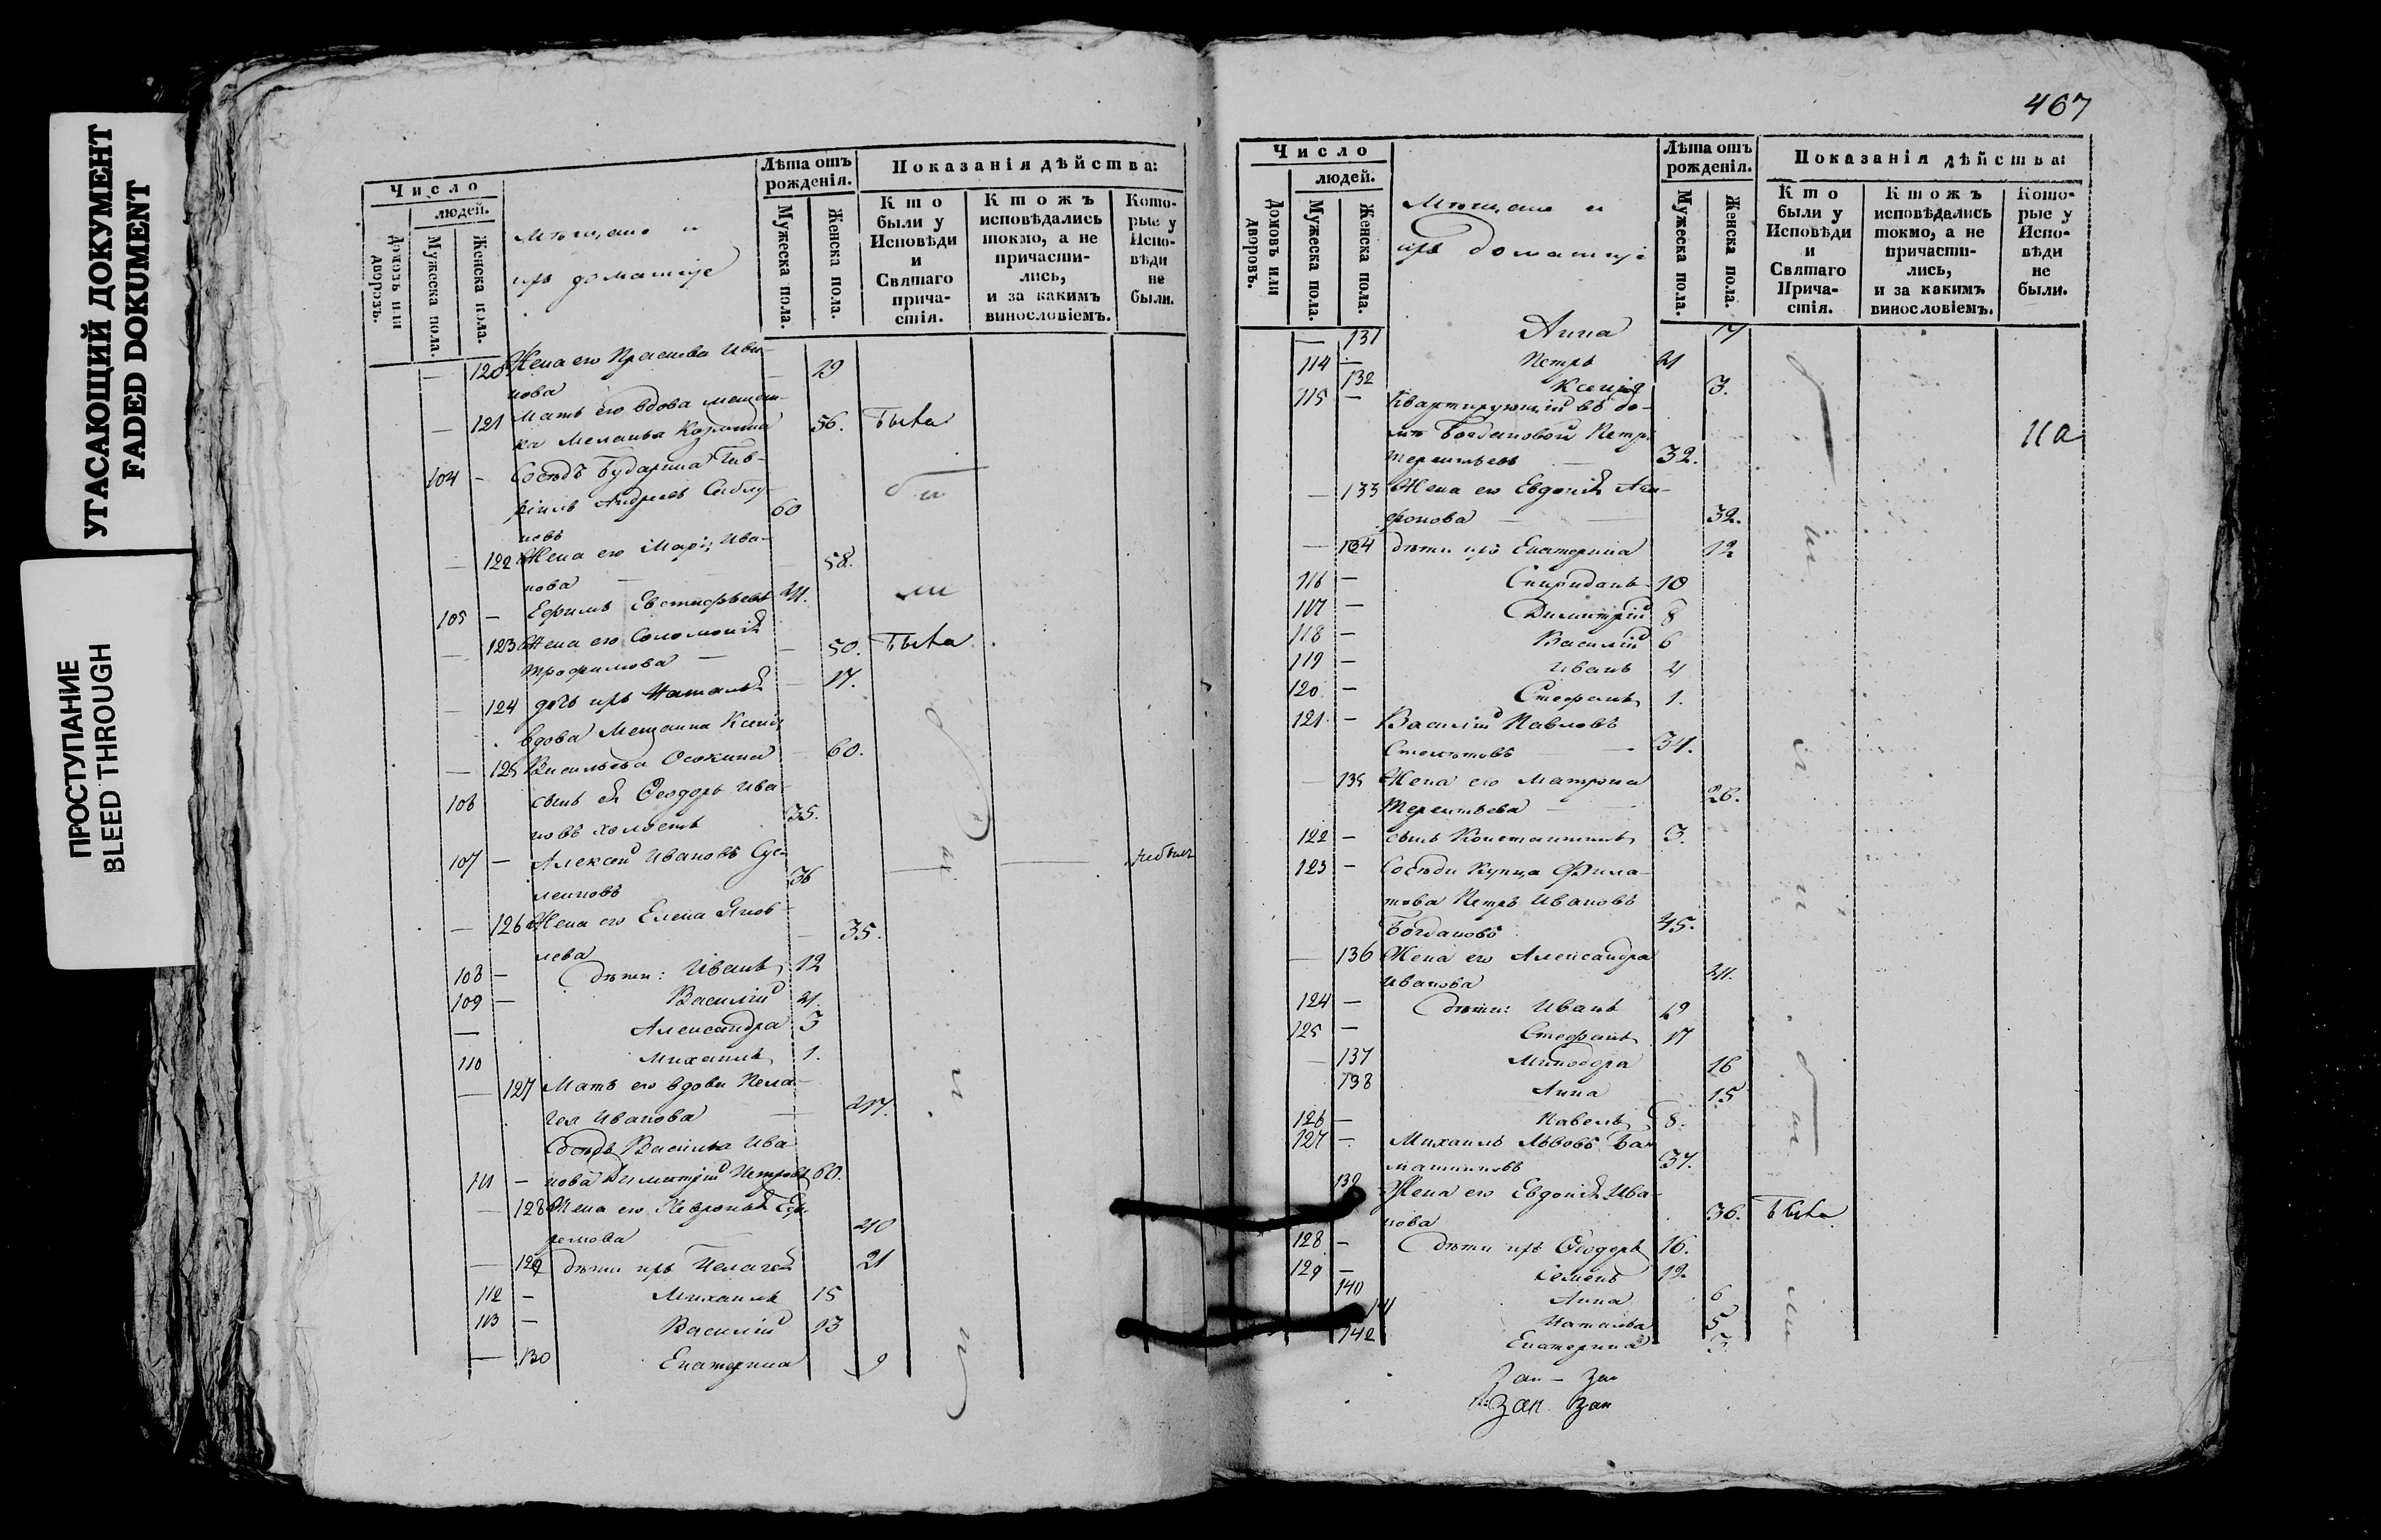 УГАСАЮЩИЙ ДОКУМЕНТ
FADED DOKUMENT
ПРОСТУПАНИЕ
BLEED THROUGH
Число
людей.
Домовъ или дворовъ.
Мужеска пола.
Женска пола.
Мѣщане и
ихъ домашніе
Лѣта отъ рожденія.
Мужеска пола.
Женска пола.
Показанія дѣйства:
Кто были у Исповѣди и Святаго причастія.
Ктожъ исповѣдались токмо, а не причастились, и за какимъ винословіемъ.
Которые у Исповѣди не были.
— 120 Жена его Праскева Ива-
нова — 29
— 121 Мать его вдова мещан-
ка Меланья 56. Была
104 — Сосѣдъ Бударина Гав-
ріилъ Андреевъ 60 бы
новъ
— 122 Жена его Марія Ива-
нова — 58.
105 — Ефимъ Евстафьевъ ли
— 123 Жена его Соломонія
Трофимова — 50. Была
— 124 дочь ихъ Наталья — 17.
вдова Мещанка Ксенія
— 125 Васильева Осокина — 60.
106 сынъ ея Феодоръ Ива-
новъ холостъ 35.
107 — Алексей Ивановъ Сус-
лениковъ 36 небылъ
— 126 Жена его Елена Яков-
лева — 35.
108 — Дѣти: Иванъ 12
109 — Василій 4.
— Александра 3
110 Михаилъ 1.
— 127 Мать его вдова Пела-
гея Иванова — 47.
Сосѣдъ Василья Ива
111 — нова Димитрій Петровъ 60.
— 128 Жена его Февронья Еф-
ремова 40
— 129 дѣти ихъ Пелагея 21
112 — Михаилъ 15
113 — Василій 13
— 130 Екатерина 9
467
Число
людей.
Домовъ или дворовъ.
Мужеска пола.
Женска пола.
Мѣщане и
ихъ домашніе
Лѣта отъ рожденія.
Мужеска пола.
Женска пола.
Показанія дѣйства:
Кто были у Исповѣди и Святаго Причастія.
Ктожъ исповѣдались токмо, а не причастились, и за какимъ винословіемъ.
Которые у Исповѣди не были.
— 131 Анна 17
114 — Петръ 4
132 Ксенія 3.
115 — Квартирующій въ до-
мѣ Богдановой Петръ
Терентьевъ — 32.
— 133 Жена его Евдокія Ага-
фонова — 32.
— 134 дѣти ихъ Екатерина 12
116 — Спиридонъ 10
117 — Димитрій 8
118 — Василій 6
119 — Иванъ 4
120 — Стефанъ 1.
121 — Василій Павловъ
Столѣтовъ — 34.
— 135 Жена его Матрона
Терентьева — 26.
122 — сынъ Константинъ 3.
123 — Сосѣди Купца Фила-
това Петръ Ивановъ
Богдановъ 45.
— 136 Жена его Александра
Иванова
124 — Дѣти: Иванъ 19
125 — Стефанъ 17
— 137 Минодора 16
138 Анна 15
126 — Павелъ 8.
127 — Михаилъ Львовъ Баш
машниковъ 37.
139 Жена его Евдокія Ива-
нова 36. Была
128 — Дѣти ихъ Феодоръ 16.
129 — Семенъ 12.
140 Анна 6
141 Наталья 5
142 Екатерина 3